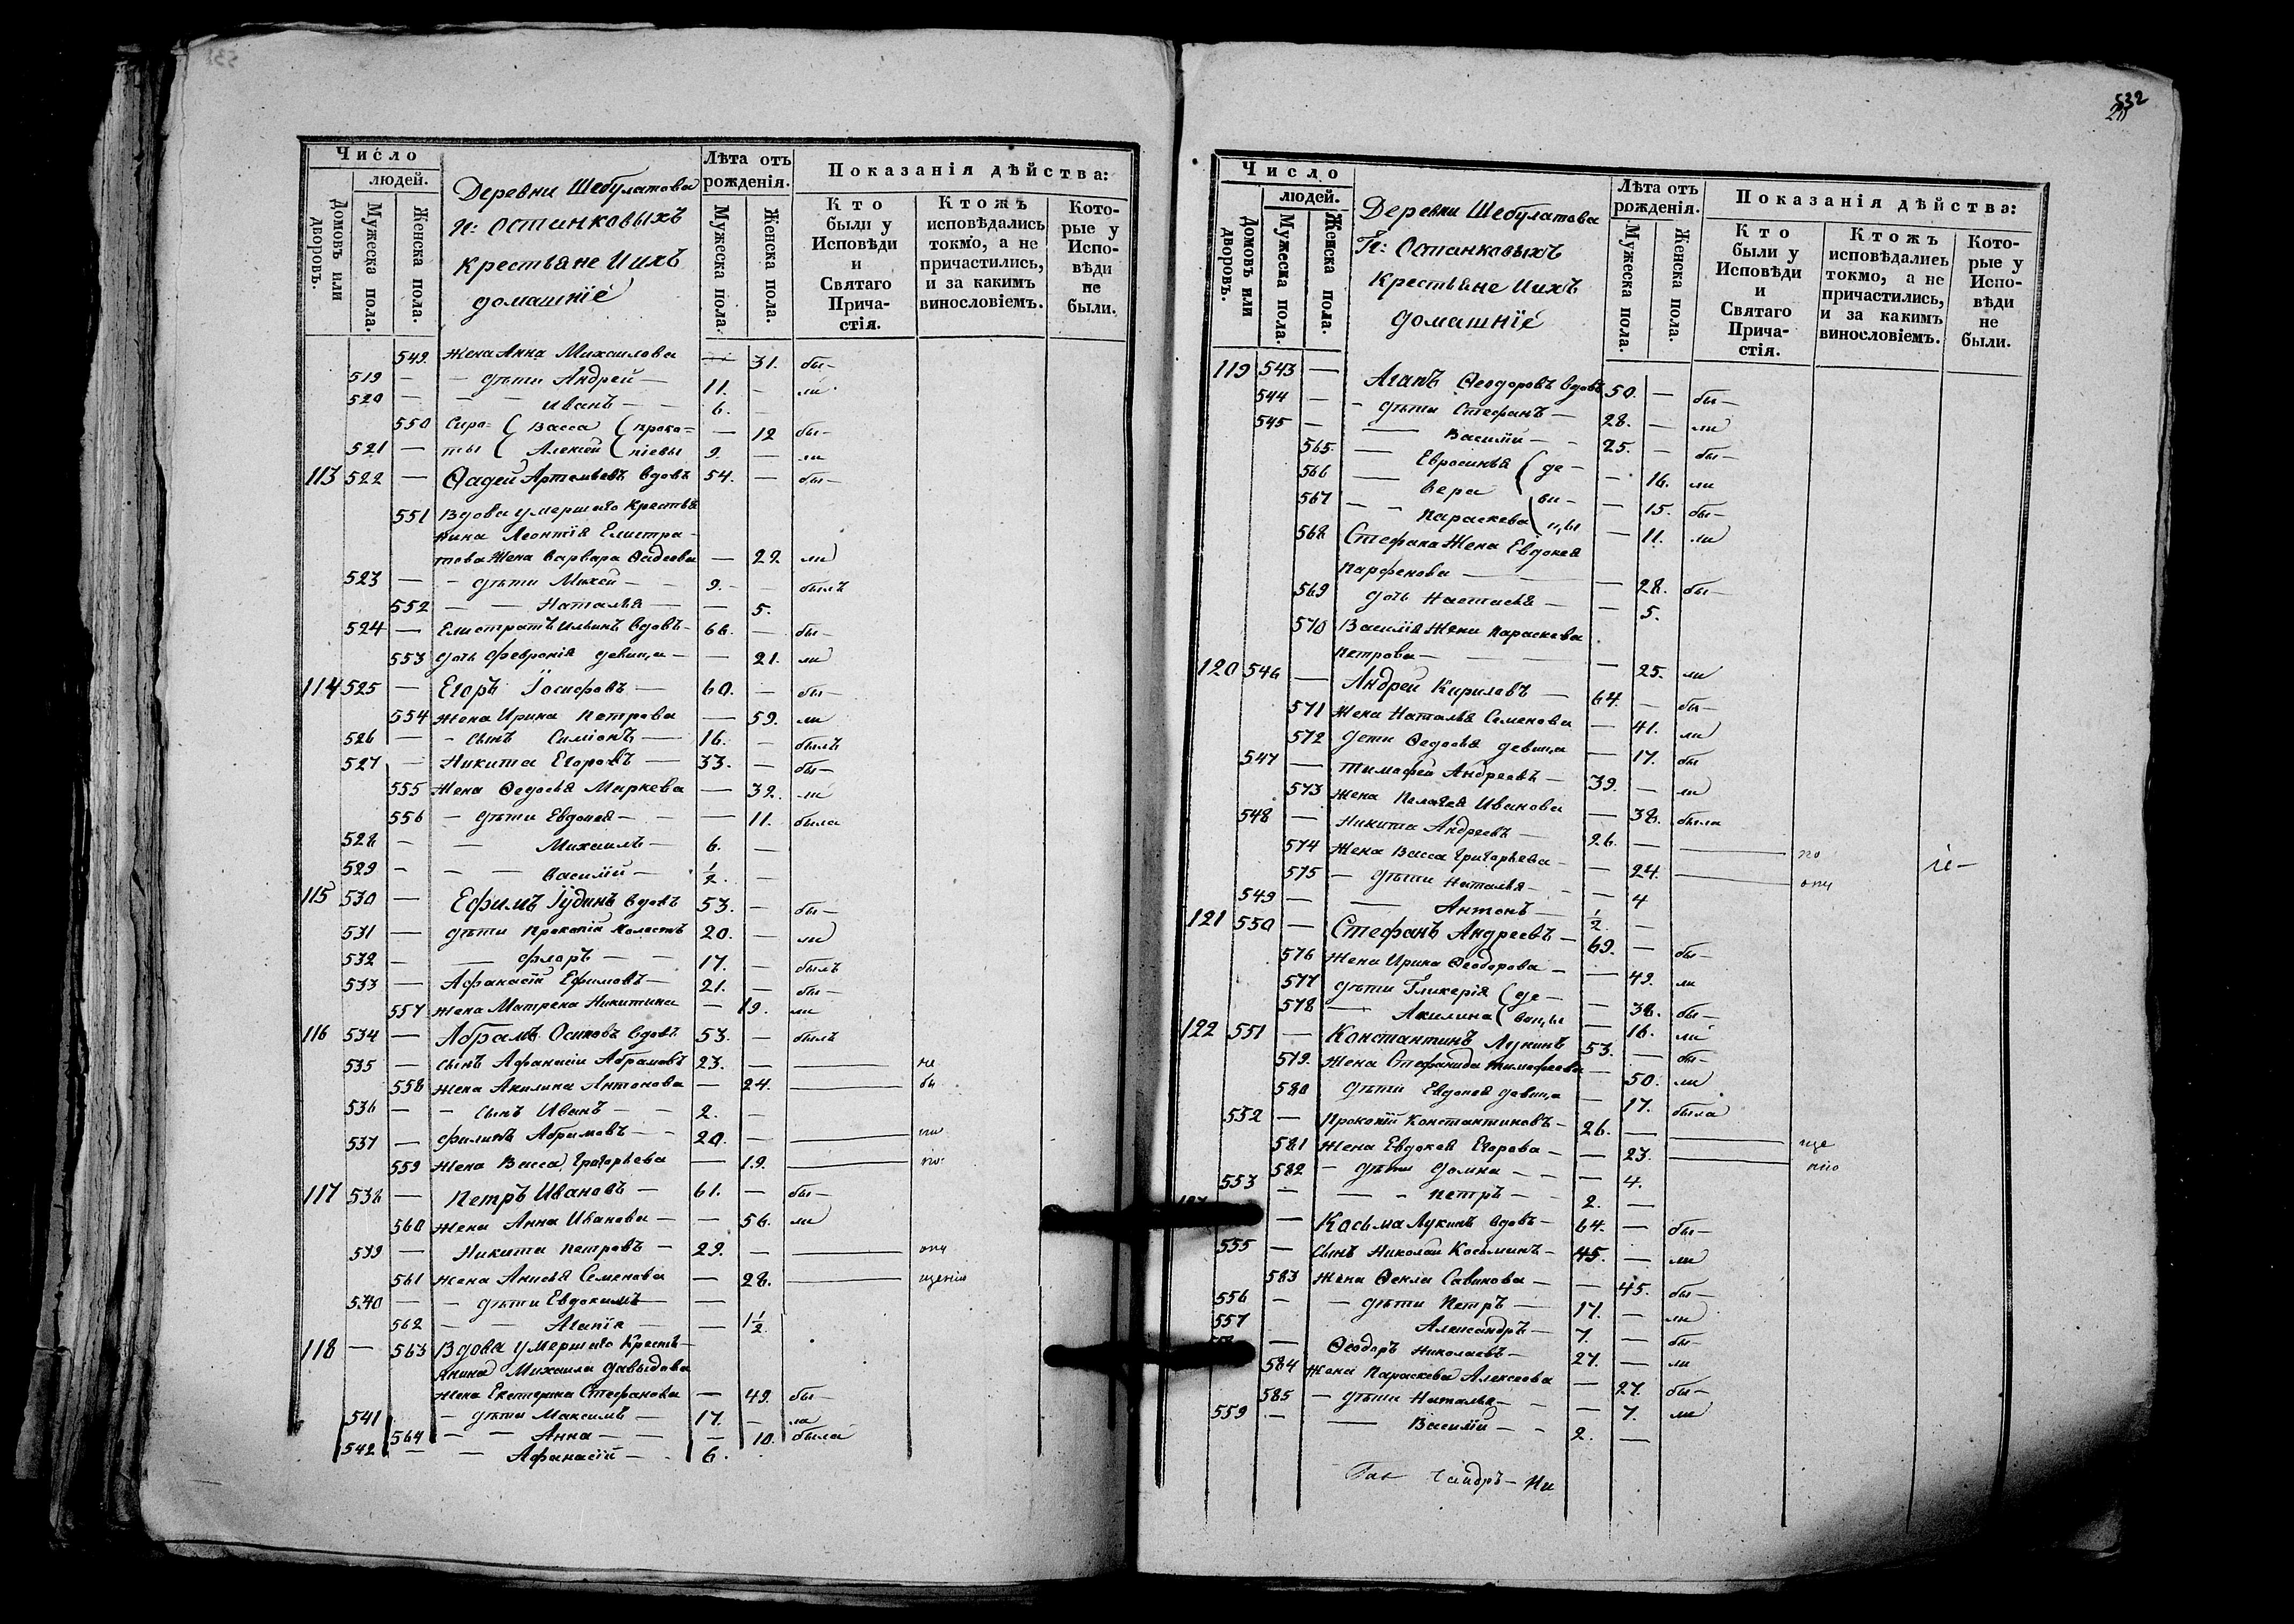 532
Число
людей.
Домовъ или дворовъ.
Мужеска пола.
Женска пола.
Деревни Шебулатова
г: Останковыхъ
крестьяне и ихъ
домашніе
Лѣта отъ рожденія.
Мужеска пола.
Женска пола.
Показанія дѣйства:
Кто были у Исповѣди и Святаго Причастія.
Ктожъ исповѣдались токмо, а не причастились, и за какимъ винословіемъ.
Которые у Исповѣди не были.
549. жена Анна Михаилова — 31. бы-
519 — дѣти Андрей — 11. — ли
520 — Иванъ — 6. —
550 Сиро= ( Васса ( проко= — 12 бы-
521 — ты ( Алексей ( піевы 9. — ли
113 522 — Ѳадей Артемьевъ вдовъ 54. — бы-
551 Вдова умершаго крестья
нина Леонтія Елистра-
това жена Варвара Ѳадеева — 22 ли
523 — дѣти Михей — 9. — былъ
552 — Наталья — 5.
524 — Елистратъ Ильинъ вдовъ — 66. — бы-
553 дочь Февронія девица — 21. ли
114 525 — Егоръ Іосифовъ — 60. — бы-
554 жена Ирина Петрова — 59. ли
526 — сынъ Симіонъ — 16. — былъ
527 — Никита Егоровъ — 33. — бы-
555 жена Ѳедосья Маркева — 32. ли
556 — дѣти Евдокея — 11. была
528 — Михаилъ — 6. —
529 — Василій — 1/2. —
115 530 — Ефимъ Іудинъ вдовъ 53. — бы-
531 — дѣти Прокопій холостъ 20. — ли
532 — Флоръ — 17. — былъ
533 — Афанасій Ефимовъ — 21. — бы-
557 жена Матрена Никитина — 19. ли
116 534 — Абрамъ Осиповъ вдовъ 53. — былъ
535 — сынъ Афанасіи Абрамовъ 23. — не
558 жена Акилина Антонова — 24. — бы
536 — сынъ Иванъ — 2. —
537 — Филипъ Абрамовъ — 20. —
559 жена Васса Григорьева — 19. —
117 538 — Петръ Ивановъ — 61. — бы-
560 жена Анна Иванова — 56. ли
539 — Никита Петровъ — 29. — опу
561 жена Анисья Семенова — 28. — щенію
540 — дѣти Евдокимъ —
562 — Агапія — 1 1/2
118 — 563 Вдова умершаго кресть-
янина Михаила Давыдова
жена Екатерина Стефанова — 49. бы-
541 — дѣти Максимъ — 17. — ли
564 — Анна — 10. была
542 — Афанасій — 6.
Число
людей.
Домовъ или дворовъ.
Мужеска пола.
Женска пола.
Деревни Шебулатова
Г: Останковыхъ
крестьяне и ихъ
домашніе
Лѣта отъ рожденія.
Мужеска пола.
Женска пола.
Показанія дѣйства:
Кто были у Исповѣди и Святаго Причастія.
Ктожъ исповѣдались токмо, а не причастились, и за какимъ винословіемъ.
Которые у Исповѣди не были.
119 543 — Агапъ Ѳеодоровъ вдовъ 50. — бы-
544 — дѣти Стефанъ — 28. — ли
545 — Василіи — 25. — бы-
565. — Евросинья ( де- — 16. ли
566 — Вера ( ви- — 15. бы-
567 — Параскева ( цы — 11. ли
568 Стефана жена Евдокея
Парфенова — 28. бы-
569 дочь Настасья — 5.
570 Василія жена Параскева
Петрова — 25. ли
120 546 — Андрей Кириловъ — 64. — бы-
571 жена Наталья Семенова — 41. ли
572 дети Ѳедосья девица — 17. бы
547 — Тимофей Андреевъ — 39. — ли
573 жена Пелагея Иванова — 38. была
548 — Никита Андреевъ — 26. — по
574 жена Васса Григорьева — 24. — опу
575 — дѣти Наталья — 4
549 — Антонъ — 1/2. —
121 550 — Стефанъ Андреевъ — 69. — бы-
576 жена Ирина Ѳеодорова — 49. ли
577 дѣти Гликерія ( де- — 38. бы-
578 — Акилина ( вицы — 16. ли
122 551 — Константинъ Лукинъ 53. — бы-
579. жена Стефанида Тимофеева — 50. ли
580 дѣти Евдокея девица — 17. была
552 — Прокопій Константиновъ — 26. — ще
581 жена Евдокея Егорова — 23. — нію
582 — дѣти Домна — 4.
553 — Петръ — 2. —
— Косьма Лукинъ вдовъ — 64. — бы-
555 — сынъ Николай Косьминъ — 45. — ли
583 жена Ѳекла Савинова — 45. бы-
556 — дѣти Петръ — 17. — ли
557 Александръ — 7. — бы-
— Ѳеодоръ Николаевъ — 27. — ли
584 жена Параскева Алексеева — 27. бы-
585 — дѣти Наталья — 7. ли
559 — Василій — 2. —